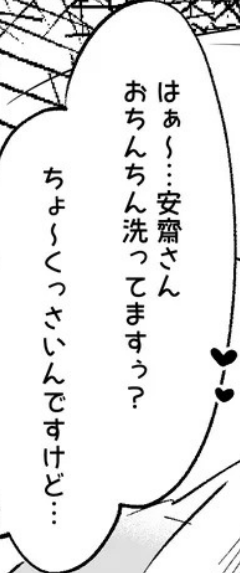 はぁ～…安齋さん
おちんちん洗ってますぅ？
ちょ～くっさいんですけど…